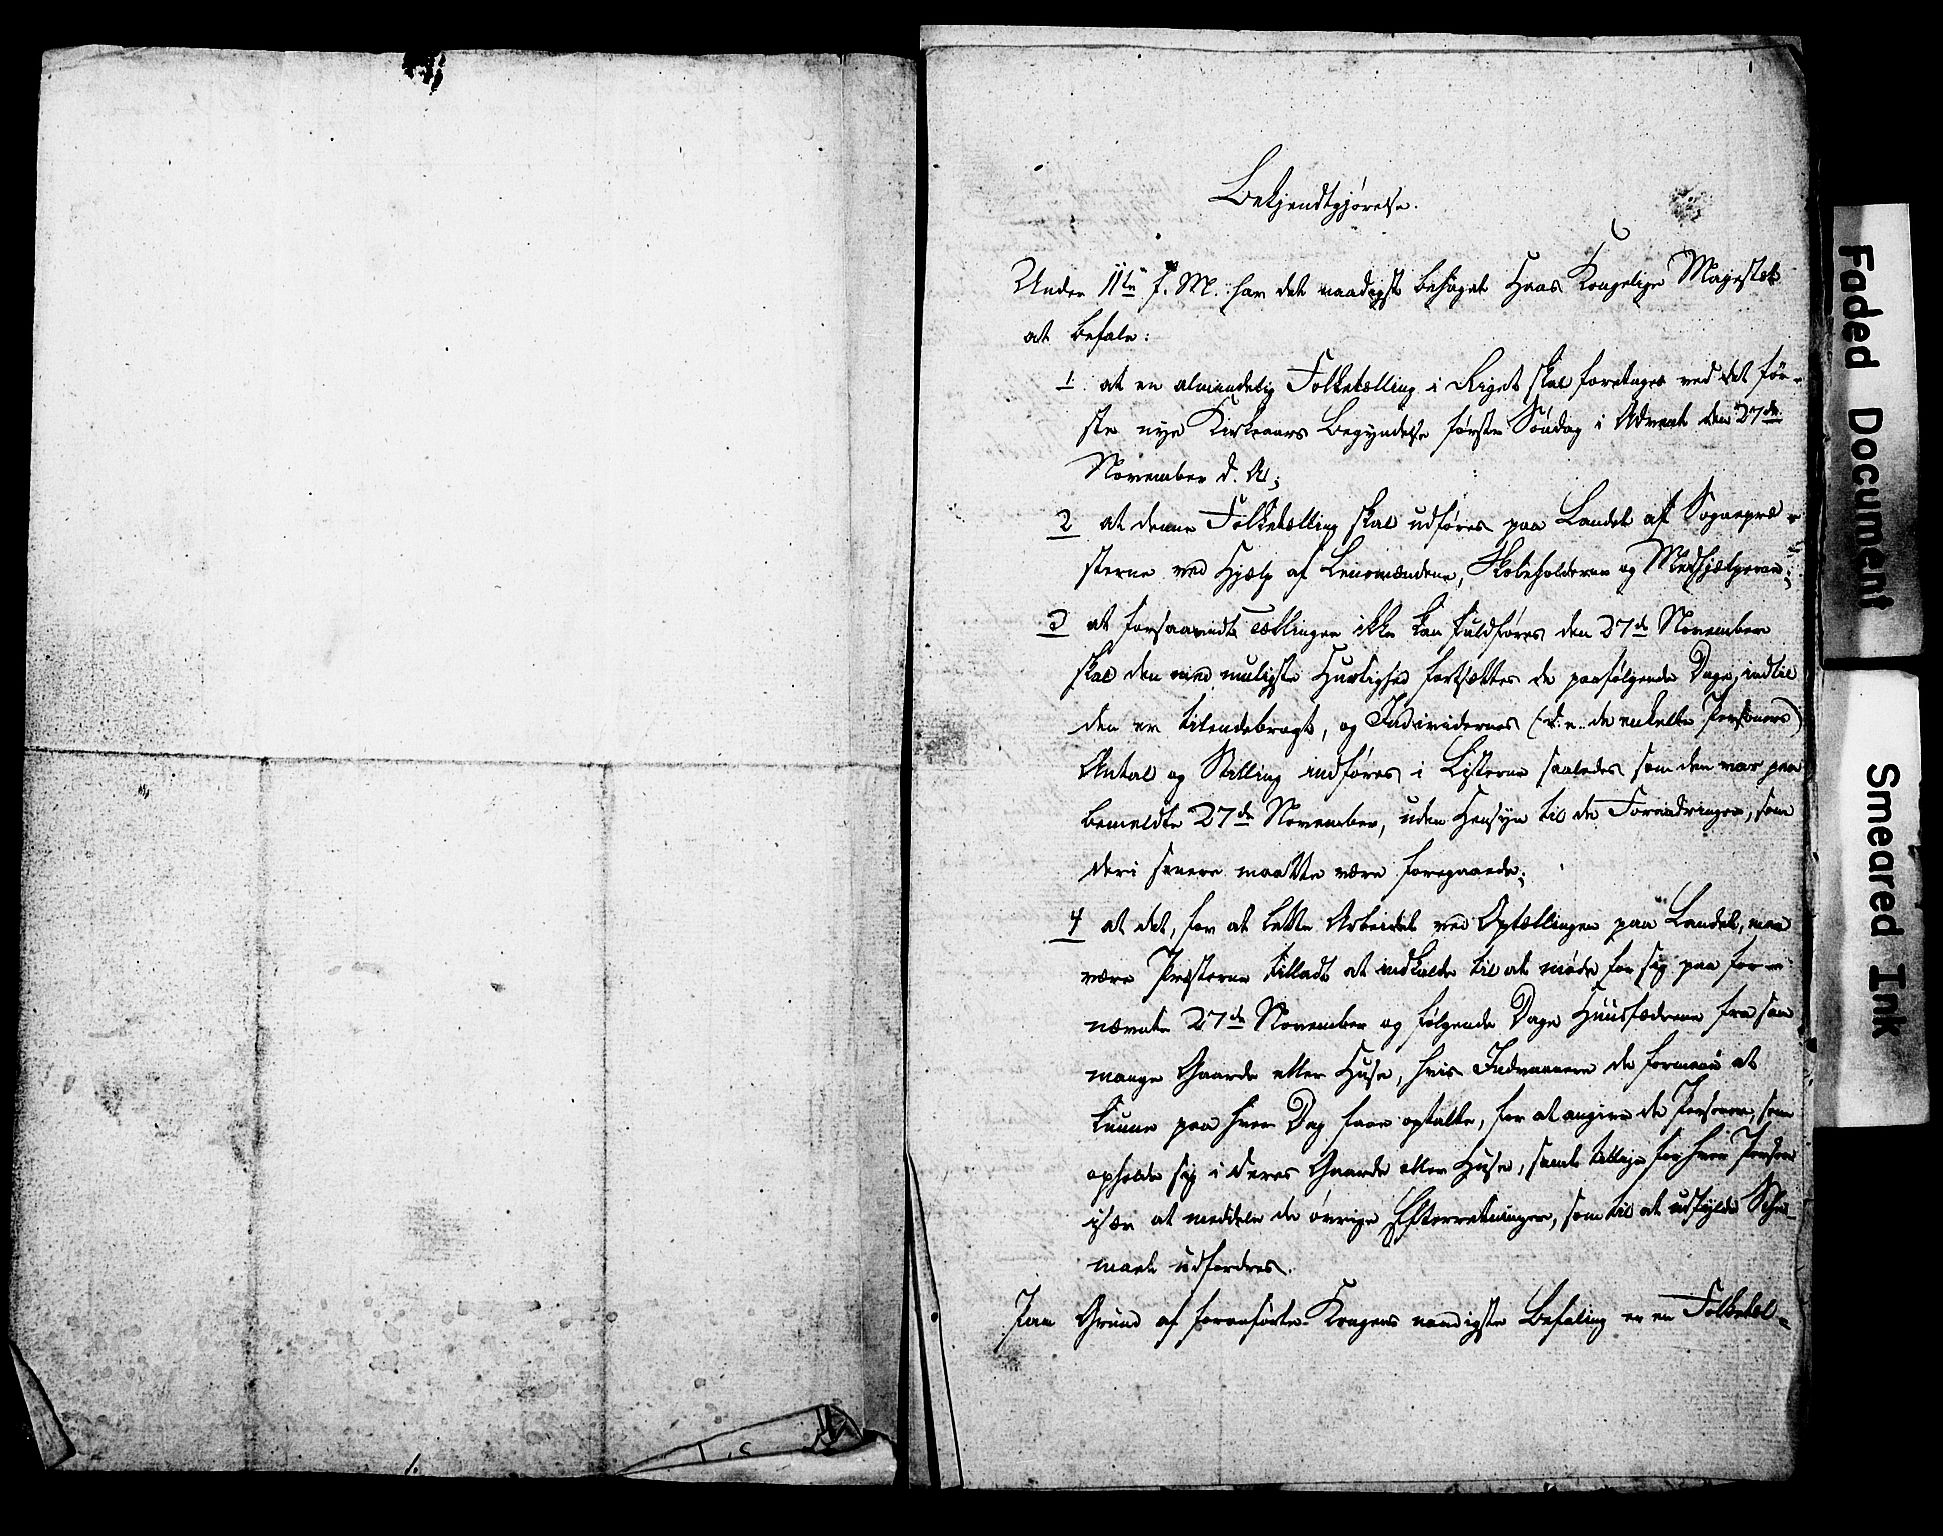 Bekjendtgjørelse.
Under 11te f. M. har det naadigst behaget Hans Kongelige Majestæt
at befale:
1 at en almindelig Folketælling i Riget skal foretages ved det før-
ste nye Kirkeaars Begyndelse første Søndag i Advent den 27de
November d. A;
2 at denne Folketælling skal udføres paa Landet af Sognepræ-
sterne ved Hjælp af Lensmændene, Skoleholderne og Medhjælperne;
3 at forsaavidt Tællingen ikke kan fuldføres den 27de November
skal den med muligste Hurtighed fortsættes de paafølgende Dage, indtil
den er tilendebragt, og Individernes (d: e: de enkelte Personers)
Antal og Stilling indføres i Listerne saaledes som den var paa
bemeldte 27de November, uden Hensyn til de Forandringer, som
deri senere maatte være foregaaede;
4 at det, for at lette Arbeidet ved Optællingen paa Landet, maa
være Præsterne tilladt at indkalde til at møde for sig paa for-
nævnte 27de November og følgende Dage Huusfædrene fra saa
mange Gaarde eller Huse, hvis Indvaanere de formene at
kunne paa hver Dag faae optalte, for at angive de Personer, som
opholde sig i deres Gaarde eller Huse, samt tillige for hver Person
især at meddele de øvrige Efterretninger, som til at udfylde Sche-
maet udfordres.
Paa Grund af foranførte Kongens naadigste Befaling er en Folketæl-
Faded Document
Smeared Ink